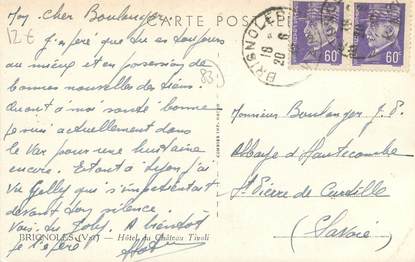 Mon cher Boulanger,
12 €
CARTE POSTALE
J'espère que tu es toujours
au mieux et en possession de
bonnes nouvelles des tiens.
Quant à moi santé bonne
je suis actuellement dans
le Var pour une huitaine
encore. Etant à Lyon j'ai
vu Gelly qui s'impatientait
devant ton silence.
A bientôt
je l'espère
BRIGNOLES (Var) — Hôtel du Château Tivoli
83
BRIGNOLES
16
20 6
60c
60c
Monsieur Boulanger J. P.
Abbaye d'Hautecombe
St Pierre de Curtille
(Savoie)